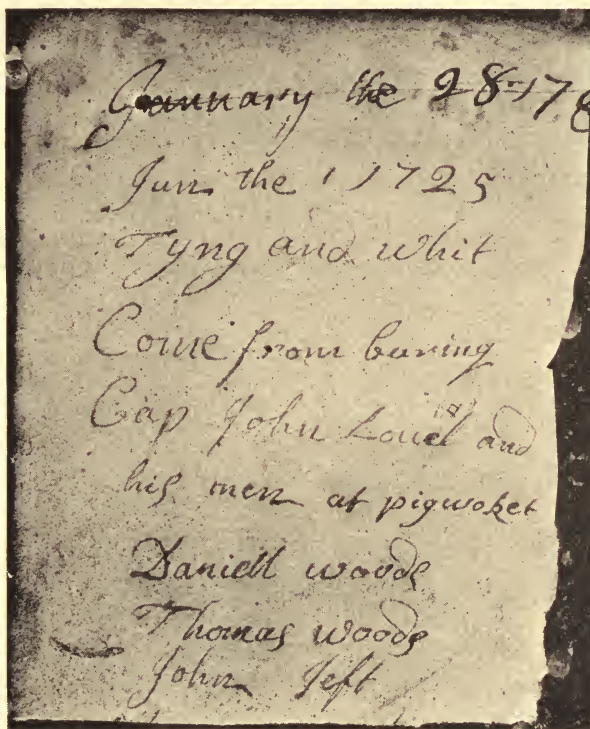 January the 28 178
Jun the 1 1725
Tyng and Whit
Come from buring
Cap John Louel and
his men at pigwoket
Daniell woods
Thomas woods
John Jeft